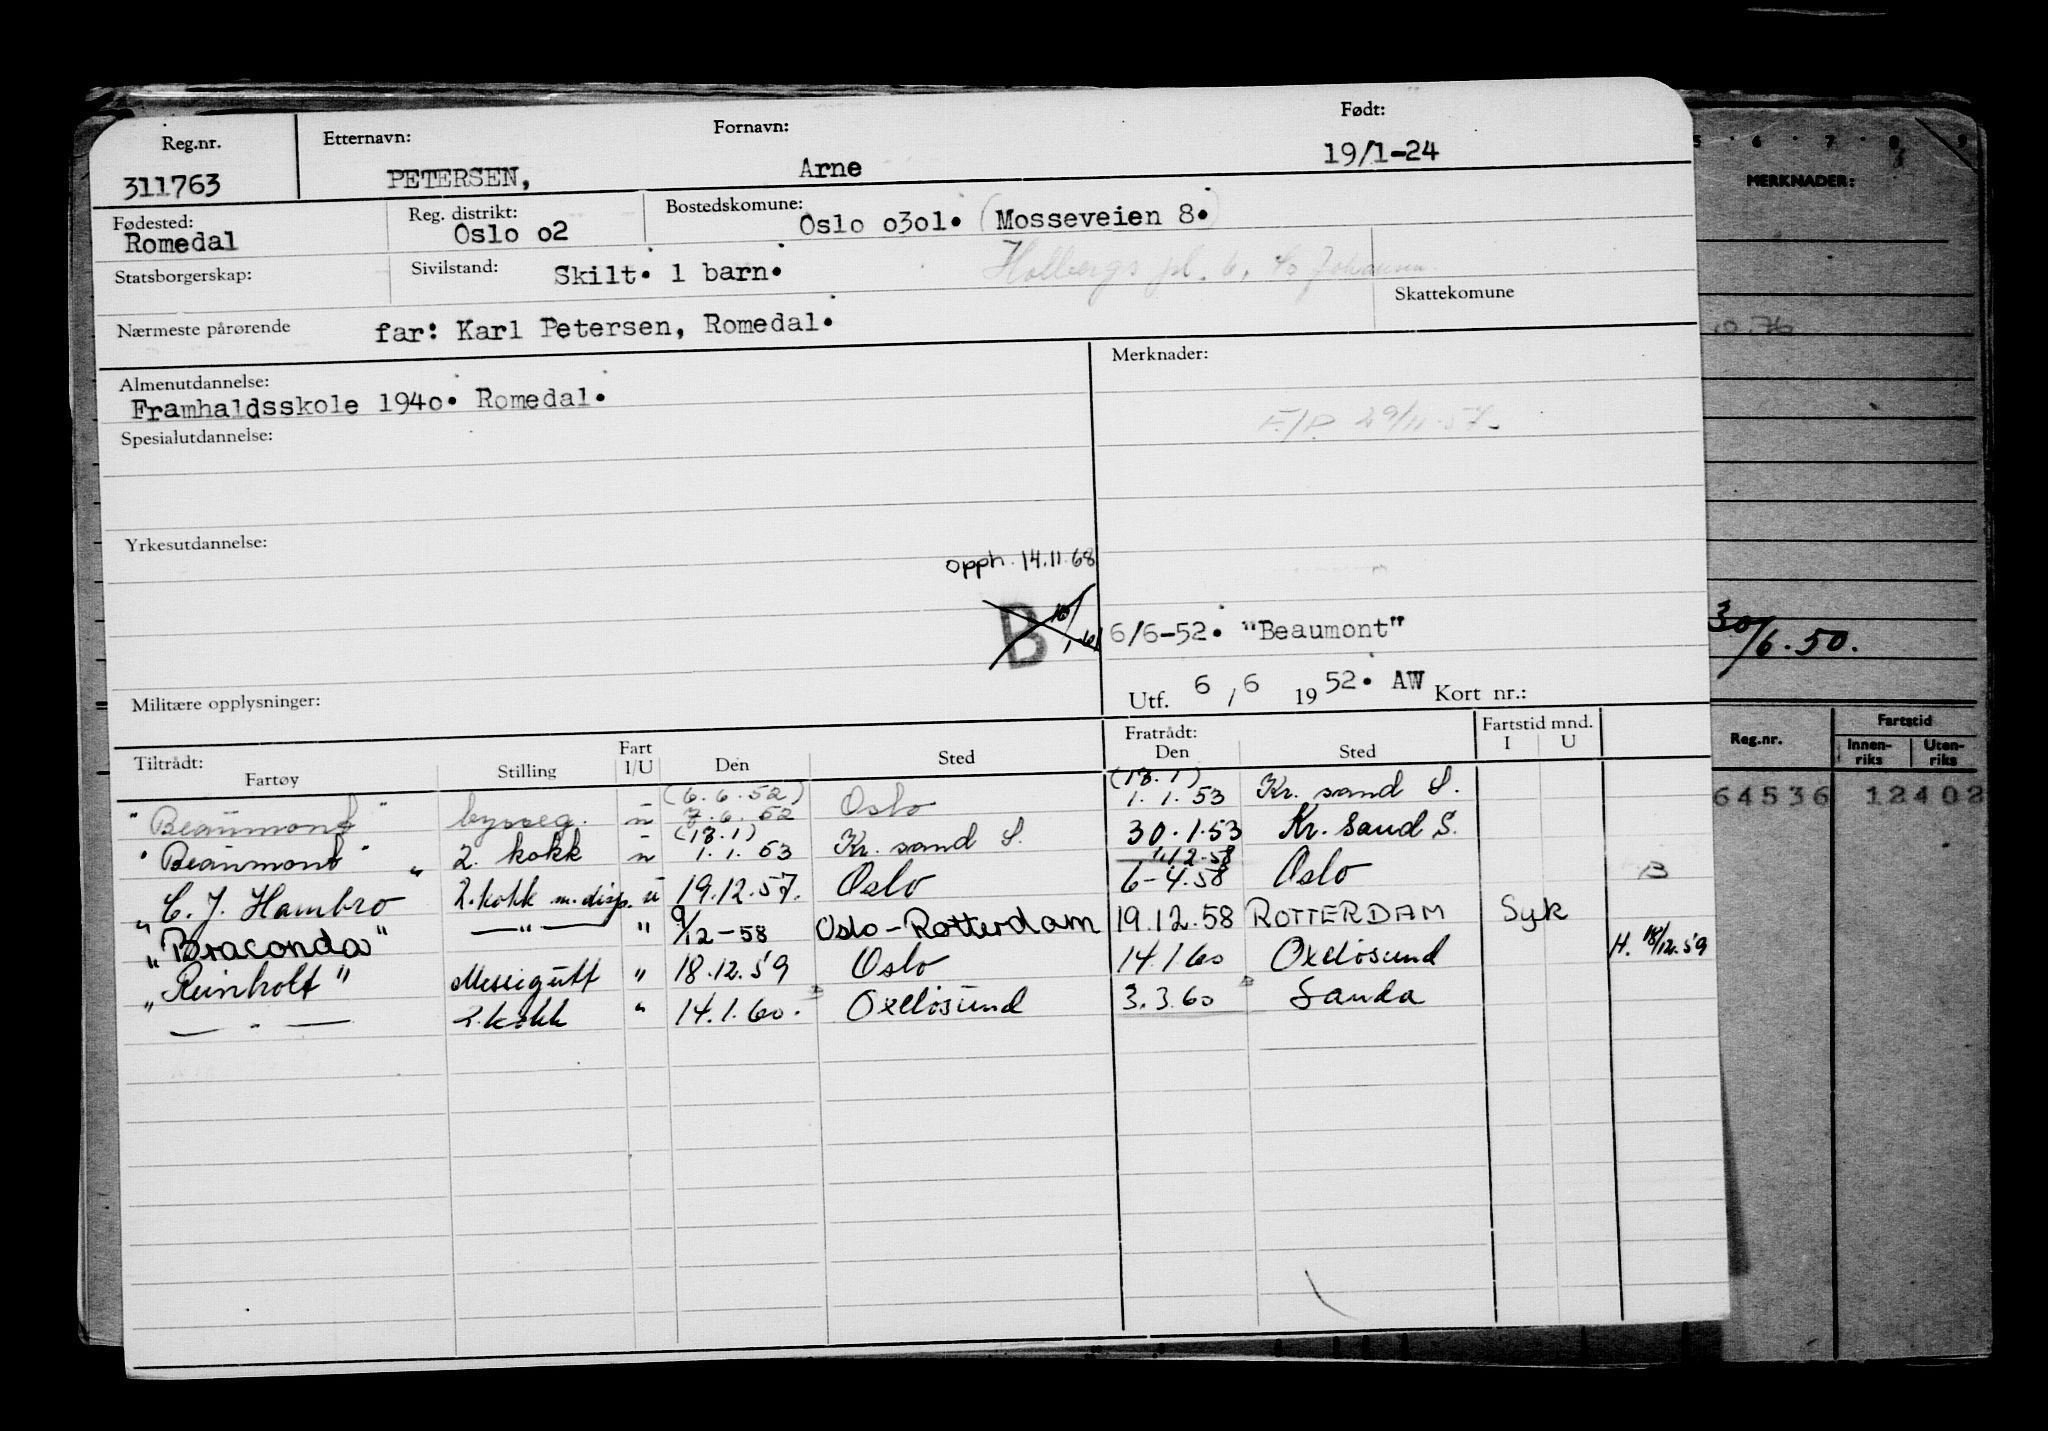 Reg.nr. Etternavn: Fornavn: Født:
311763 PETERSEN, Arne 19/1-24
Fødested: Reg. distrikt: Bostedskomune:
Romedal Oslo o2 Oslo o3o1. (Mosseveien 8.)
Statsborgerskap: Sivilstand: Skilt. 1 barn. Holbergs pl. 6, c/o Johansen
Skattekomune
Nærmeste pårørende far: Karl Petersen, Romedal.
Almenutdannelse: Merknader:
Framhaldsskole 194o. Romedal.
F./P. 29/11-57-
Spesialutdannelse:
Yrkesutdannelse:
opph. 14.11.68
B
6/6-52. "Beaumont"
Utf. 6 / 6 19 52. AW Kort nr.:
Militære opplysninger:
Tiltrådt: Fratrådt: Fartstid mnd.
Fartøy Stilling Fart I/U Den Sted Den Sted I U
"Beaumont" bysseg. u (6.6.52) 7.6.52 Oslo (13.1) 1.1.53 Kr. sand S.
"Beaumont" 2. kokk u (13.1) 1.1.53 Kr. sand S. 30.1.53 Kr. Sand S.
"C. J. Hambro" 2. kokk m. disp. u 19.12.57. Oslo 1.12.58 6-4.58 Oslo B
"Braconda" —"— " 9/12-58 Oslo-Rotterdam 19.12.58 ROTTERDAM Syk
"Reinholt" Messegutt " 18.12.59 Oslo 14.1.60 Oxelösund H. 18/12.59
— " — 2. kokk " 14.1.60. Oxelösund 3.3.60 Sauda
MERKNADER:
10.76
30/6.50.
Reg.nr. Fartstid
Innen-riks Uten-riks
64536 12402